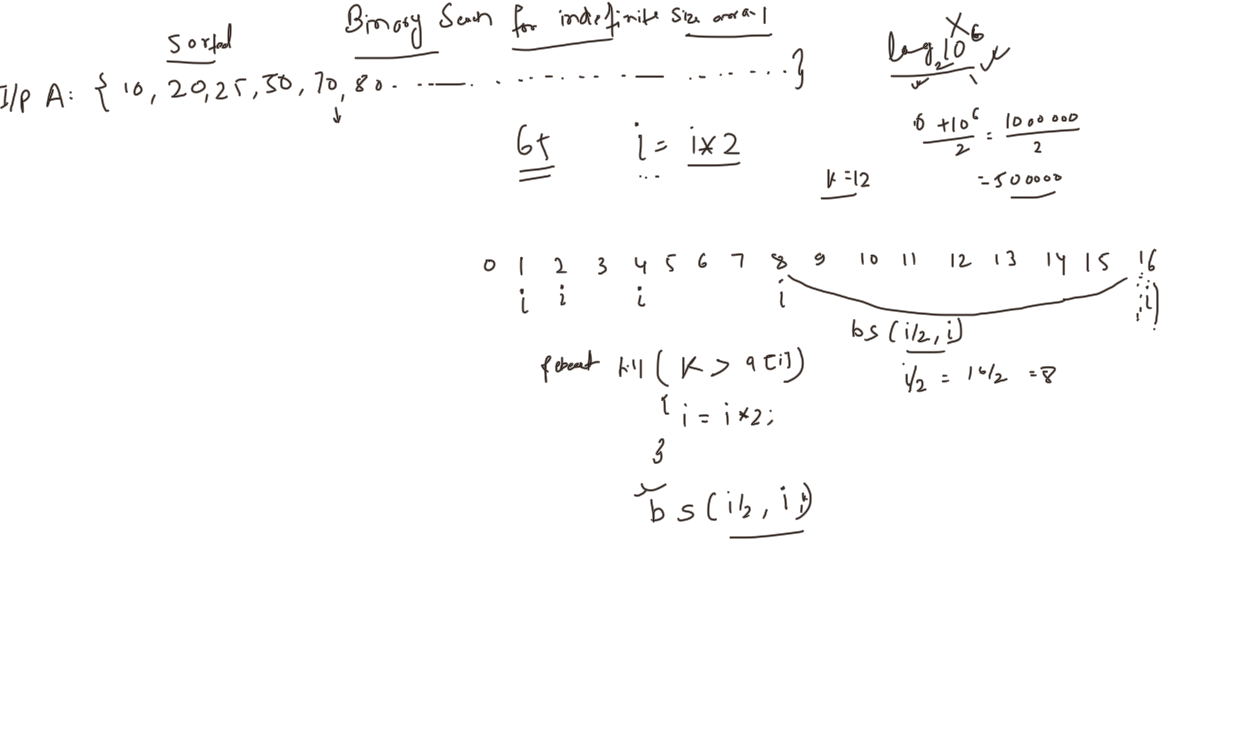 Binary Search for indefinite size array
Sorted
I/P A: { 10, 20, 25, 50, 70, 80. ..—. . ....... — ........}
log₂10⁶
65 i = i*2
0 + 10⁶ / 2 = 1000000 / 2
k = 12 = 500000
0 1 2 3 4 5 6 7 8 9 10 11 12 13 14 15 16
i i i i i
bs (i/2, i)
(K > a[i])
i/2 = 16/2 = 8
{ i = i*2;
}
bs (i/2, i)